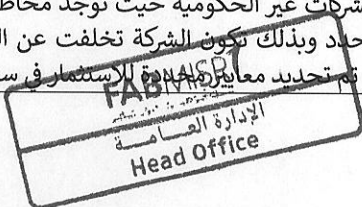 شركات غير الحكومية حيث توجد
حدد وبذلك تكون الشركة تخلفت عن
تم تحديد معايير محددة للاستثمار في
FABMISR
الإدارة العـامـــة
Head Office